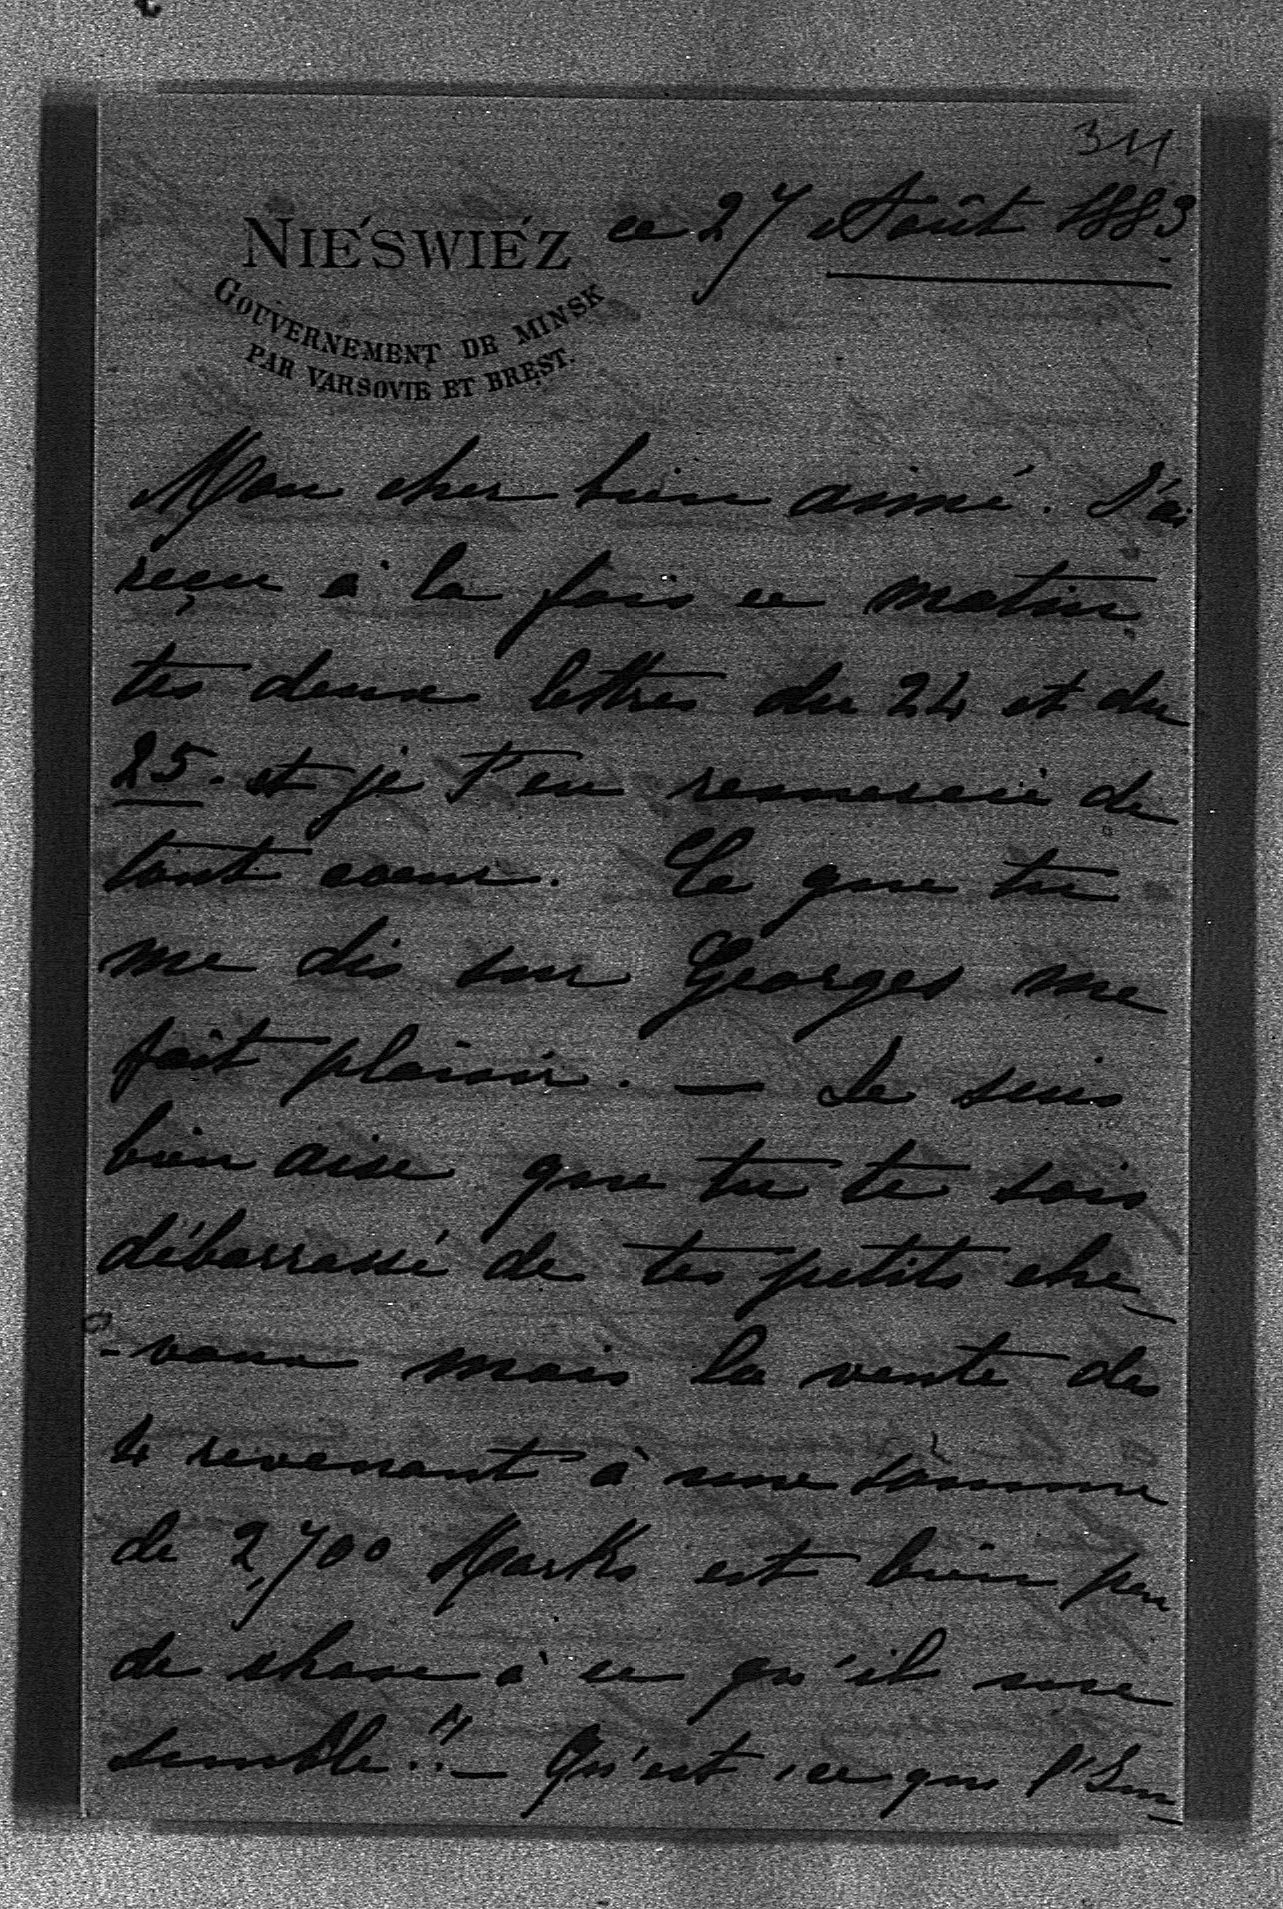 311
NIÉSWIÉZ ce 27 Août 1883
GOUVERNEMENT DE MINSK
PAR VARSOVIE ET BREST.
Mon cher bien aimé. J'ai
reçu à la fois ce matin
tes deux lettres du 24 et du
25. et je t'en remercie de
tout coeur. Ce que tu
me dis sur Georges me
fait plaisir. — Je suis
bien aise que tu te sois
débarrassé de tes petits che_
-vaux mais la vente des
4 revenant à une somme
de 2,700 Marks est bien peu
de chose à ce qu'il me
semble!? — Qu'est-ce que l'Em_